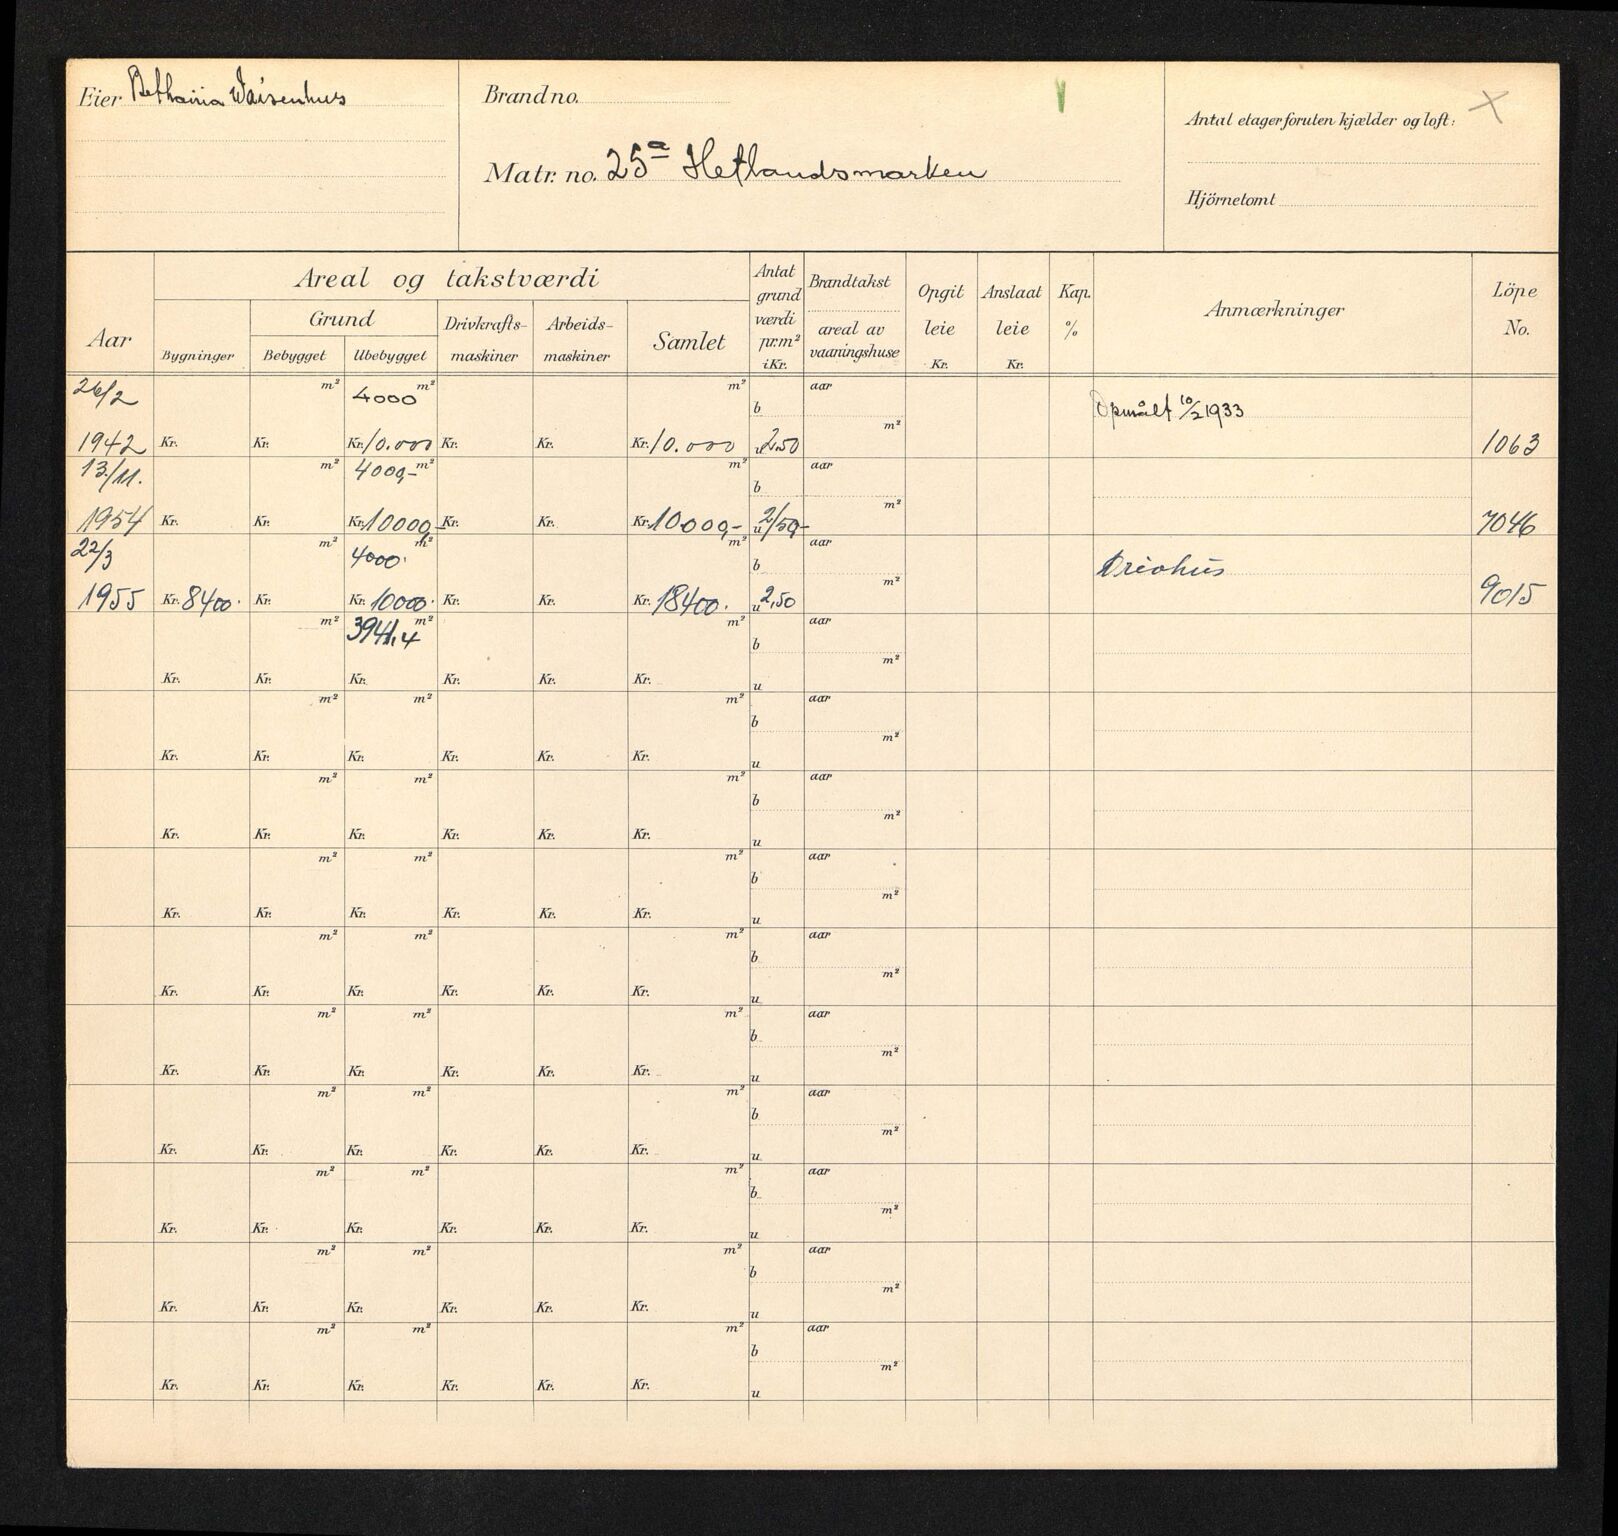 Eier Bethania Waisenhus
Brand no.
Matr. no. 25a Hetlandsmarken
Antal etager foruten kjælder og loft: X
Hjörnetomt
Aar
Areal og takstværdi
Bygninger
Grund
Bebygget
Ubebygget
Drivkrafts-
maskiner
Arbeids-
maskiner
Samlet
Antat
grund
værdi
pr.m²
i Kr.
Brandtakst
areal av
vaaningshuse
Opgit
leie
Kr.
Anslaat
leie
Kr.
Kap.
%
Anmærkninger
Löpe
No.
26/2 m² 4000 m² m² b aar Opmålt 10/2 1933
m²
1942 Kr. Kr. Kr. 10.000 Kr. Kr. Kr. 10.000 u 2.50 1063
13/11. m² 4000,- m² m² b aar
m²
1954 Kr. Kr. Kr. 10000,- Kr. Kr. Kr. 10.000,- u 2/50,- 7046
22/3 m² 4000. m² m² b aar Drivhus
m²
1955 Kr. 8400. Kr. Kr. 10000. Kr. Kr. Kr. 18400. u 2,50 9015
m² 3941,4 m² m² b aar
m²
Kr. Kr. Kr. Kr. Kr. Kr. u
m² m² m² b aar
m²
Kr. Kr. Kr. Kr. Kr. Kr. u
m² m² m² b aar
m²
Kr. Kr. Kr. Kr. Kr. Kr. u
m² m² m² b aar
m²
Kr. Kr. Kr. Kr. Kr. Kr. u
m² m² m² b aar
m²
Kr. Kr. Kr. Kr. Kr. Kr. u
m² m² m² b aar
m²
Kr. Kr. Kr. Kr. Kr. Kr. u
m² m² m² b aar
m²
Kr. Kr. Kr. Kr. Kr. Kr. u
m² m² m² b aar
m²
Kr. Kr. Kr. Kr. Kr. Kr. u
m² m² m² b aar
m²
Kr. Kr. Kr. Kr. Kr. Kr. u
m² m² m² b aar
m²
Kr. Kr. Kr. Kr. Kr. Kr. u